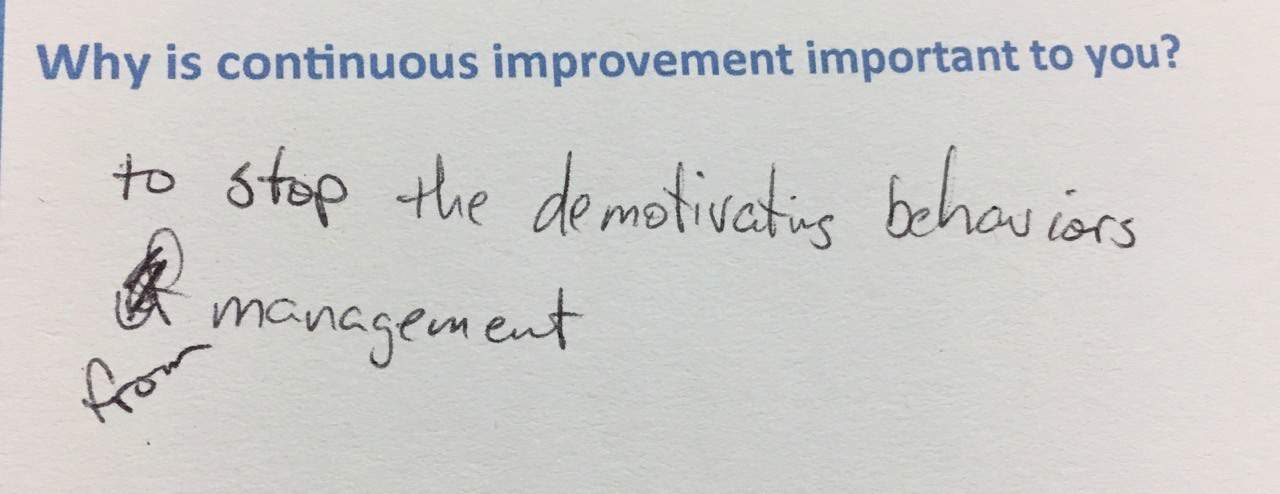 Why is continuous improvement important to you?
to stop the demotivating behaviors
management
from